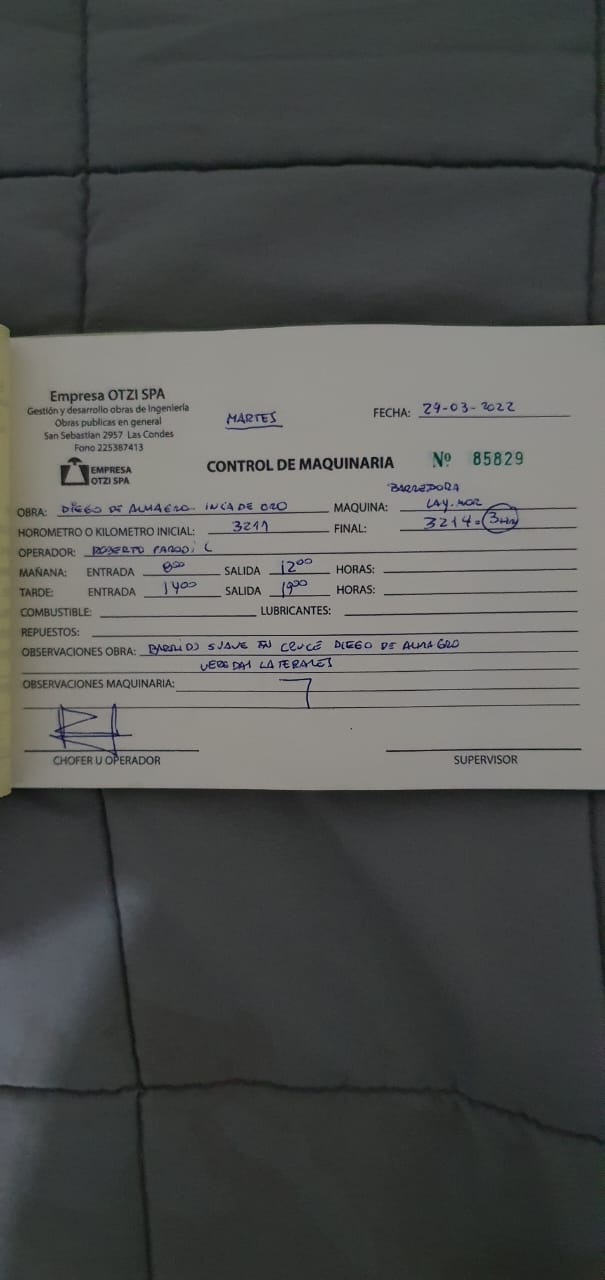 Empresa OTZI SPA
Gestión y desarrollo obras de Ingeniería
Obras publicas en general
San Sebastian 2957 Las Condes
Fono 225387413
EMPRESA
OTZI SPA
MARTES
FECHA: 29-03-2022
CONTROL DE MAQUINARIA Nº 85829
BARREDORA
OBRA: DIEGO DE ALMAGRO - INCA DE ORO MAQUINA: LAY-MOR
HOROMETRO O KILOMETRO INICIAL: 3211 FINAL: 3214 = 3Hr
OPERADOR: ROBERTO PARODI C
MAÑANA: ENTRADA 8:00 SALIDA 12:00 HORAS:
TARDE: ENTRADA 14:00 SALIDA 19:00 HORAS:
COMBUSTIBLE: LUBRICANTES:
REPUESTOS:
OBSERVACIONES OBRA: BARRIDO SUAVE EN CRUCE DIEGO DE ALMAGRO
VEREDAS LATERALES
OBSERVACIONES MAQUINARIA:
CHOFER U OPERADOR SUPERVISOR